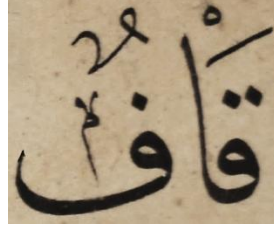 قَافْ